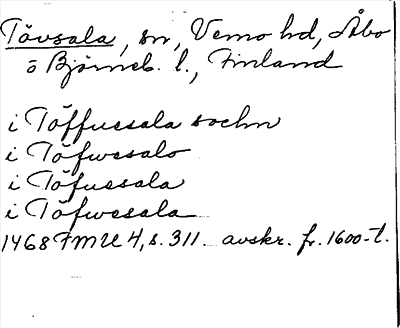 Tövsala, sn, Vemo hd, Åbo
o Björneb. l., Finland
i Töffuessala sochn
i Töfwesalo
i Töfuesala
i Töfwesala
1468 FMU 4, s. 311. avskr. fr. 1600-t.